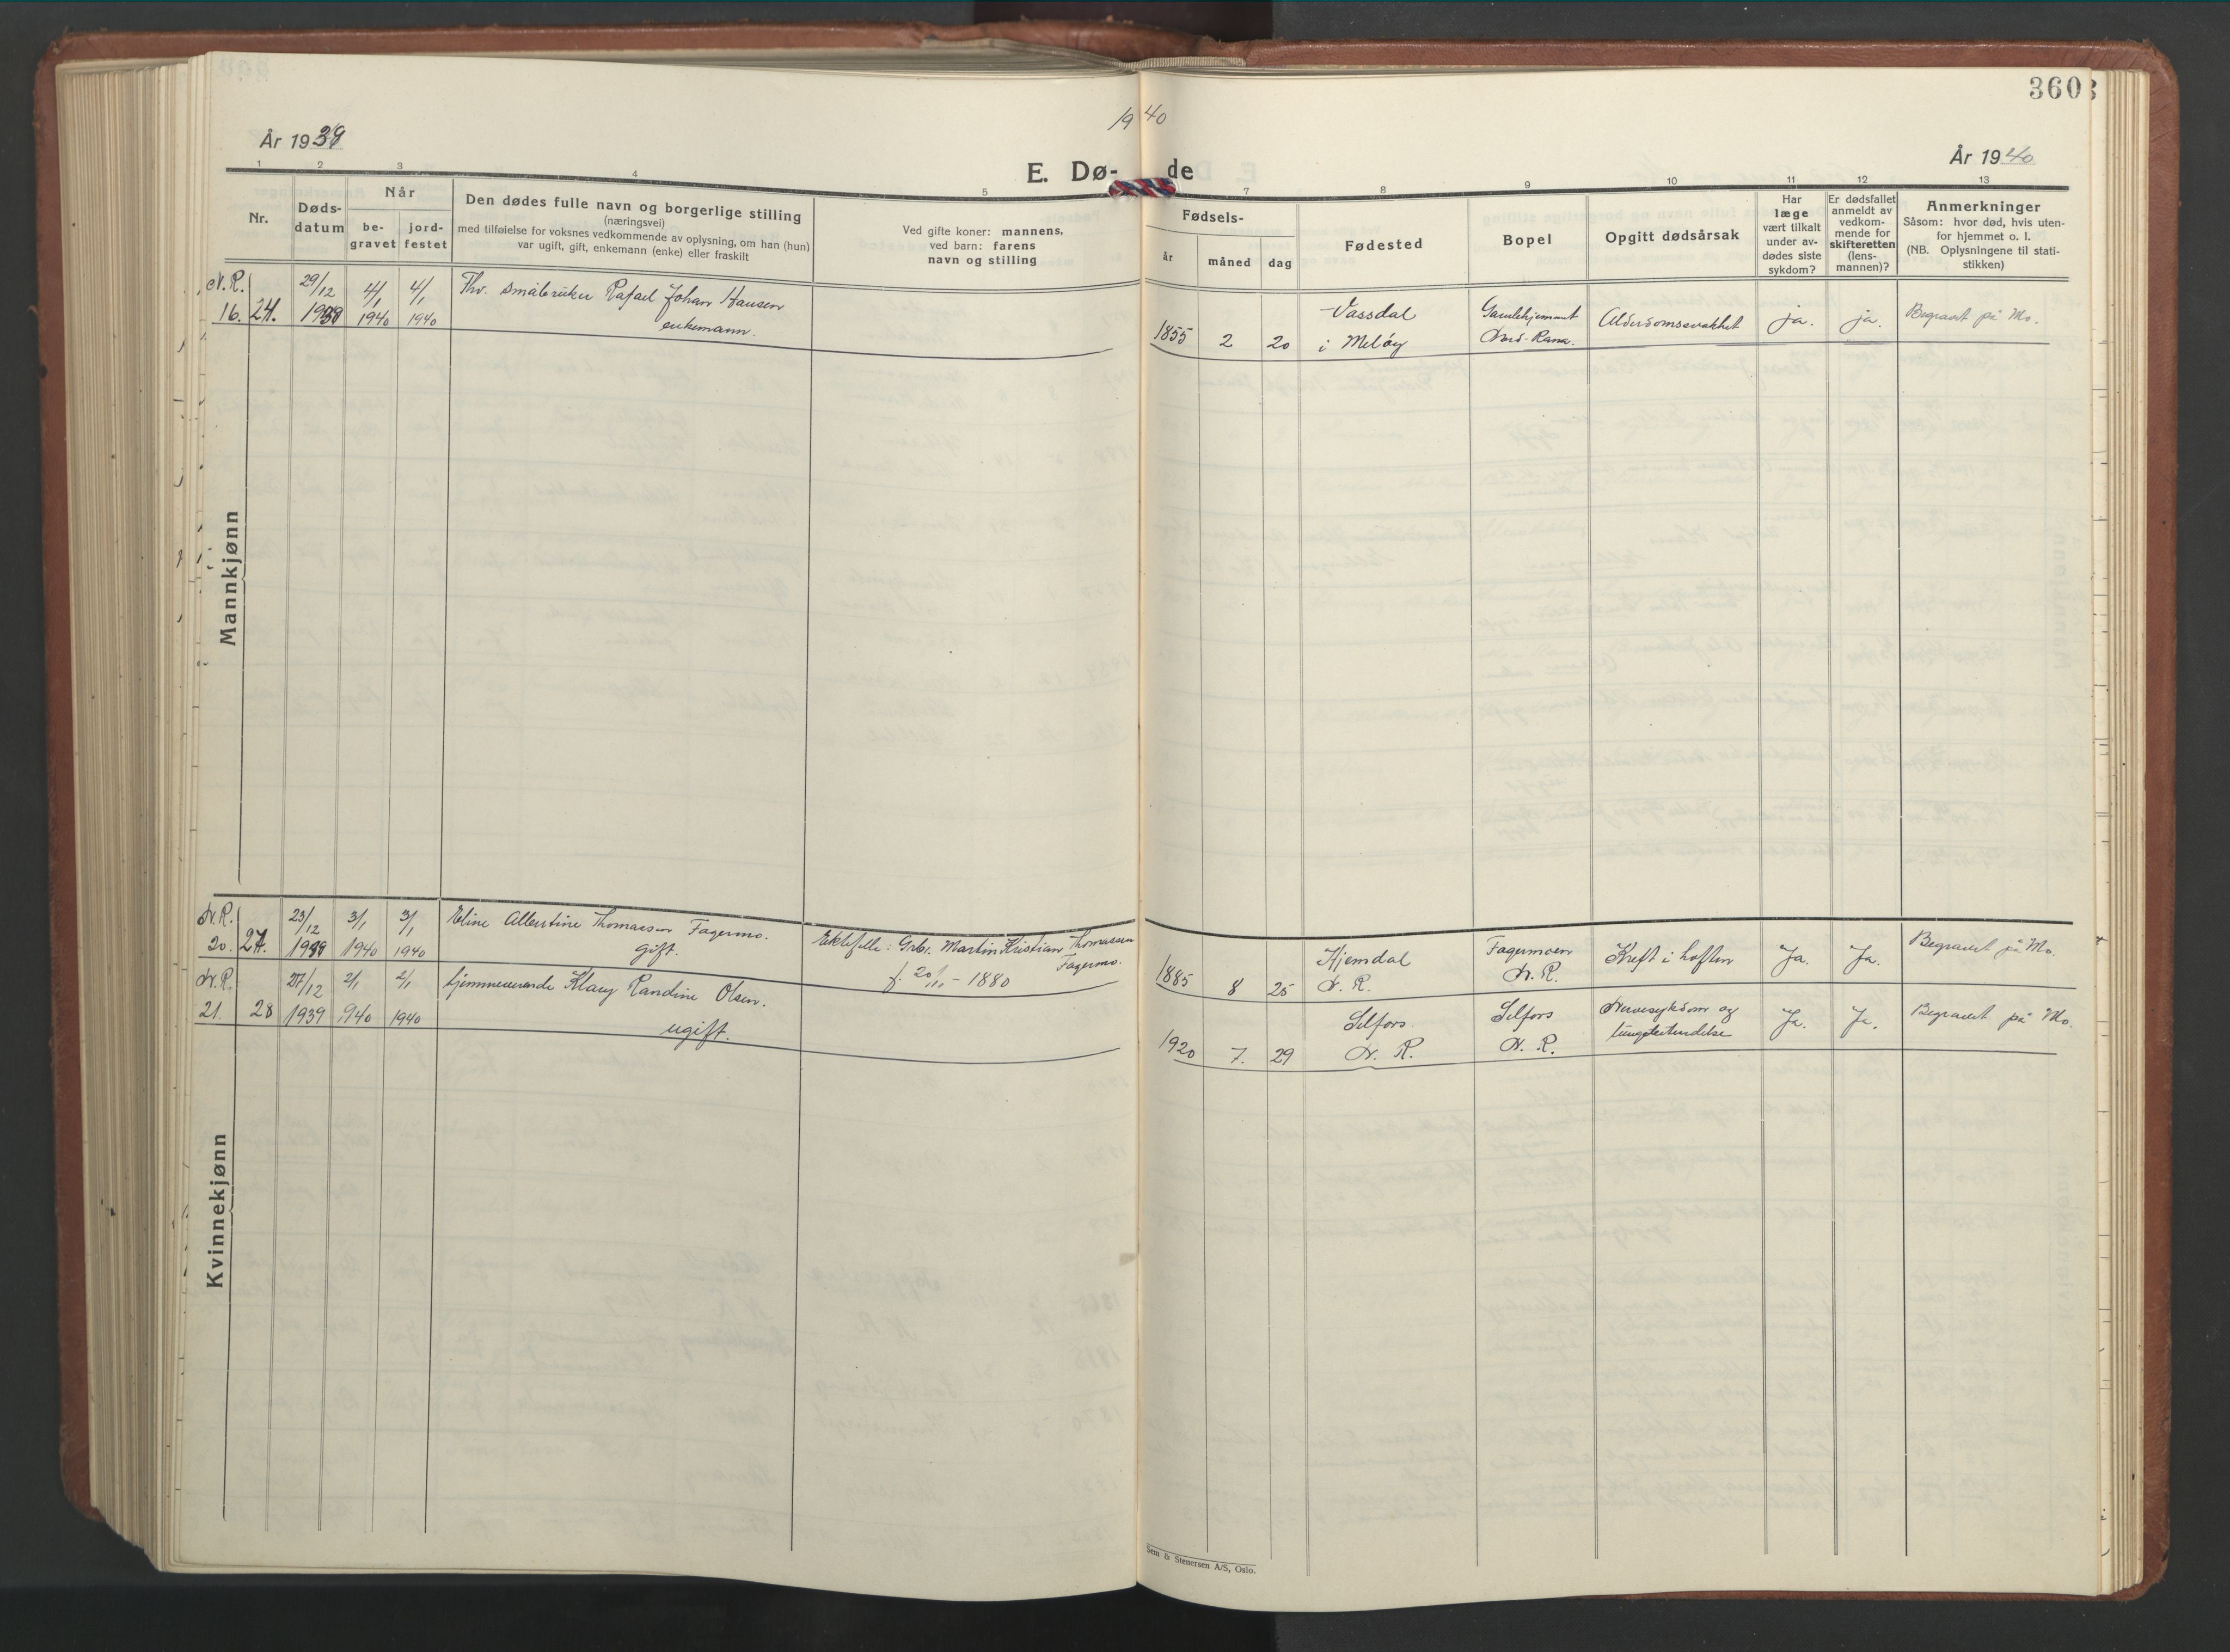 360
19 40
År 1939
E. Dø- de
År 1940
1 2 3 4 5 7 8 9 10 11 12 13
Nr.
Døds-
datum
Når
be-
gravet
jord-
festet
Den dødes fulle navn og borgerlige stilling
(næringsvei)
med tilføielse for voksnes vedkommende av oplysning, om han (hun)
var ugift, gift, enkemann (enke) eller fraskilt
Ved gifte koner: mannens,
ved barn: farens
navn og stilling
Fødsels-
år måned dag
Fødested
Bopel
Opgitt dødsårsak
Har
læge
vært tilkalt
under av-
dødes siste
sykdom?
Er dødsfallet
anmeldt av
vedkom-
mende for
skifteretten
(lens-
mannen)?
Anmerkninger
Såsom: hvor død, hvis uten-
for hjemmet o. l.
(NB. Oplysningene til stati-
stikken)
Mannkjønn
N. R. 29/12 4/1 4/1 Thv. småbruker Rafael Johan Hansen
16. 24. 1939 1940 1940 enkemann.
Vassdal Gamlehjemmet
1855 2 20 i Meløy Nord-Rana. Alderdomssvakhet ja. ja. Begravet på Mo.
Kvinnekjønn
N.R. 23/12 3/1 3/1 Eline Albertine Thomassen Fagermo.
20. 27. 1939 1940 1940 gift.
Ektefelle: Grbr. Martin Kristian Thomassen
Fagermo.
f. 20/11 - 1880
1885 8 25 Hjemdal Fagermoen Kreft i hoften Ja. Ja. Begravet på Mo.
N. R. N. R.
N.R. 27/12 2/1 2/1 hjemmeværende Klary Randine Olsen.
21. 28 1939 940 1940 ugift.
1920 7. 29 Selfors Selfors Nervesykdom og Ja. Ja. Begravet på Mo.
N. R. N. R. lungebetendelse
Sem & Stenersen A/S, Oslo.